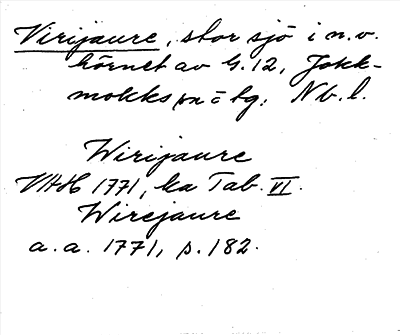 Virijaure, stor sjö i n.v.
hörnet av G.12, Jokk-
mokks sn = tg. Nb.l.
Wirijaure
VAH 1771, ka Tab. VI.
Wirejaure
a.a. 1771, s. 182.